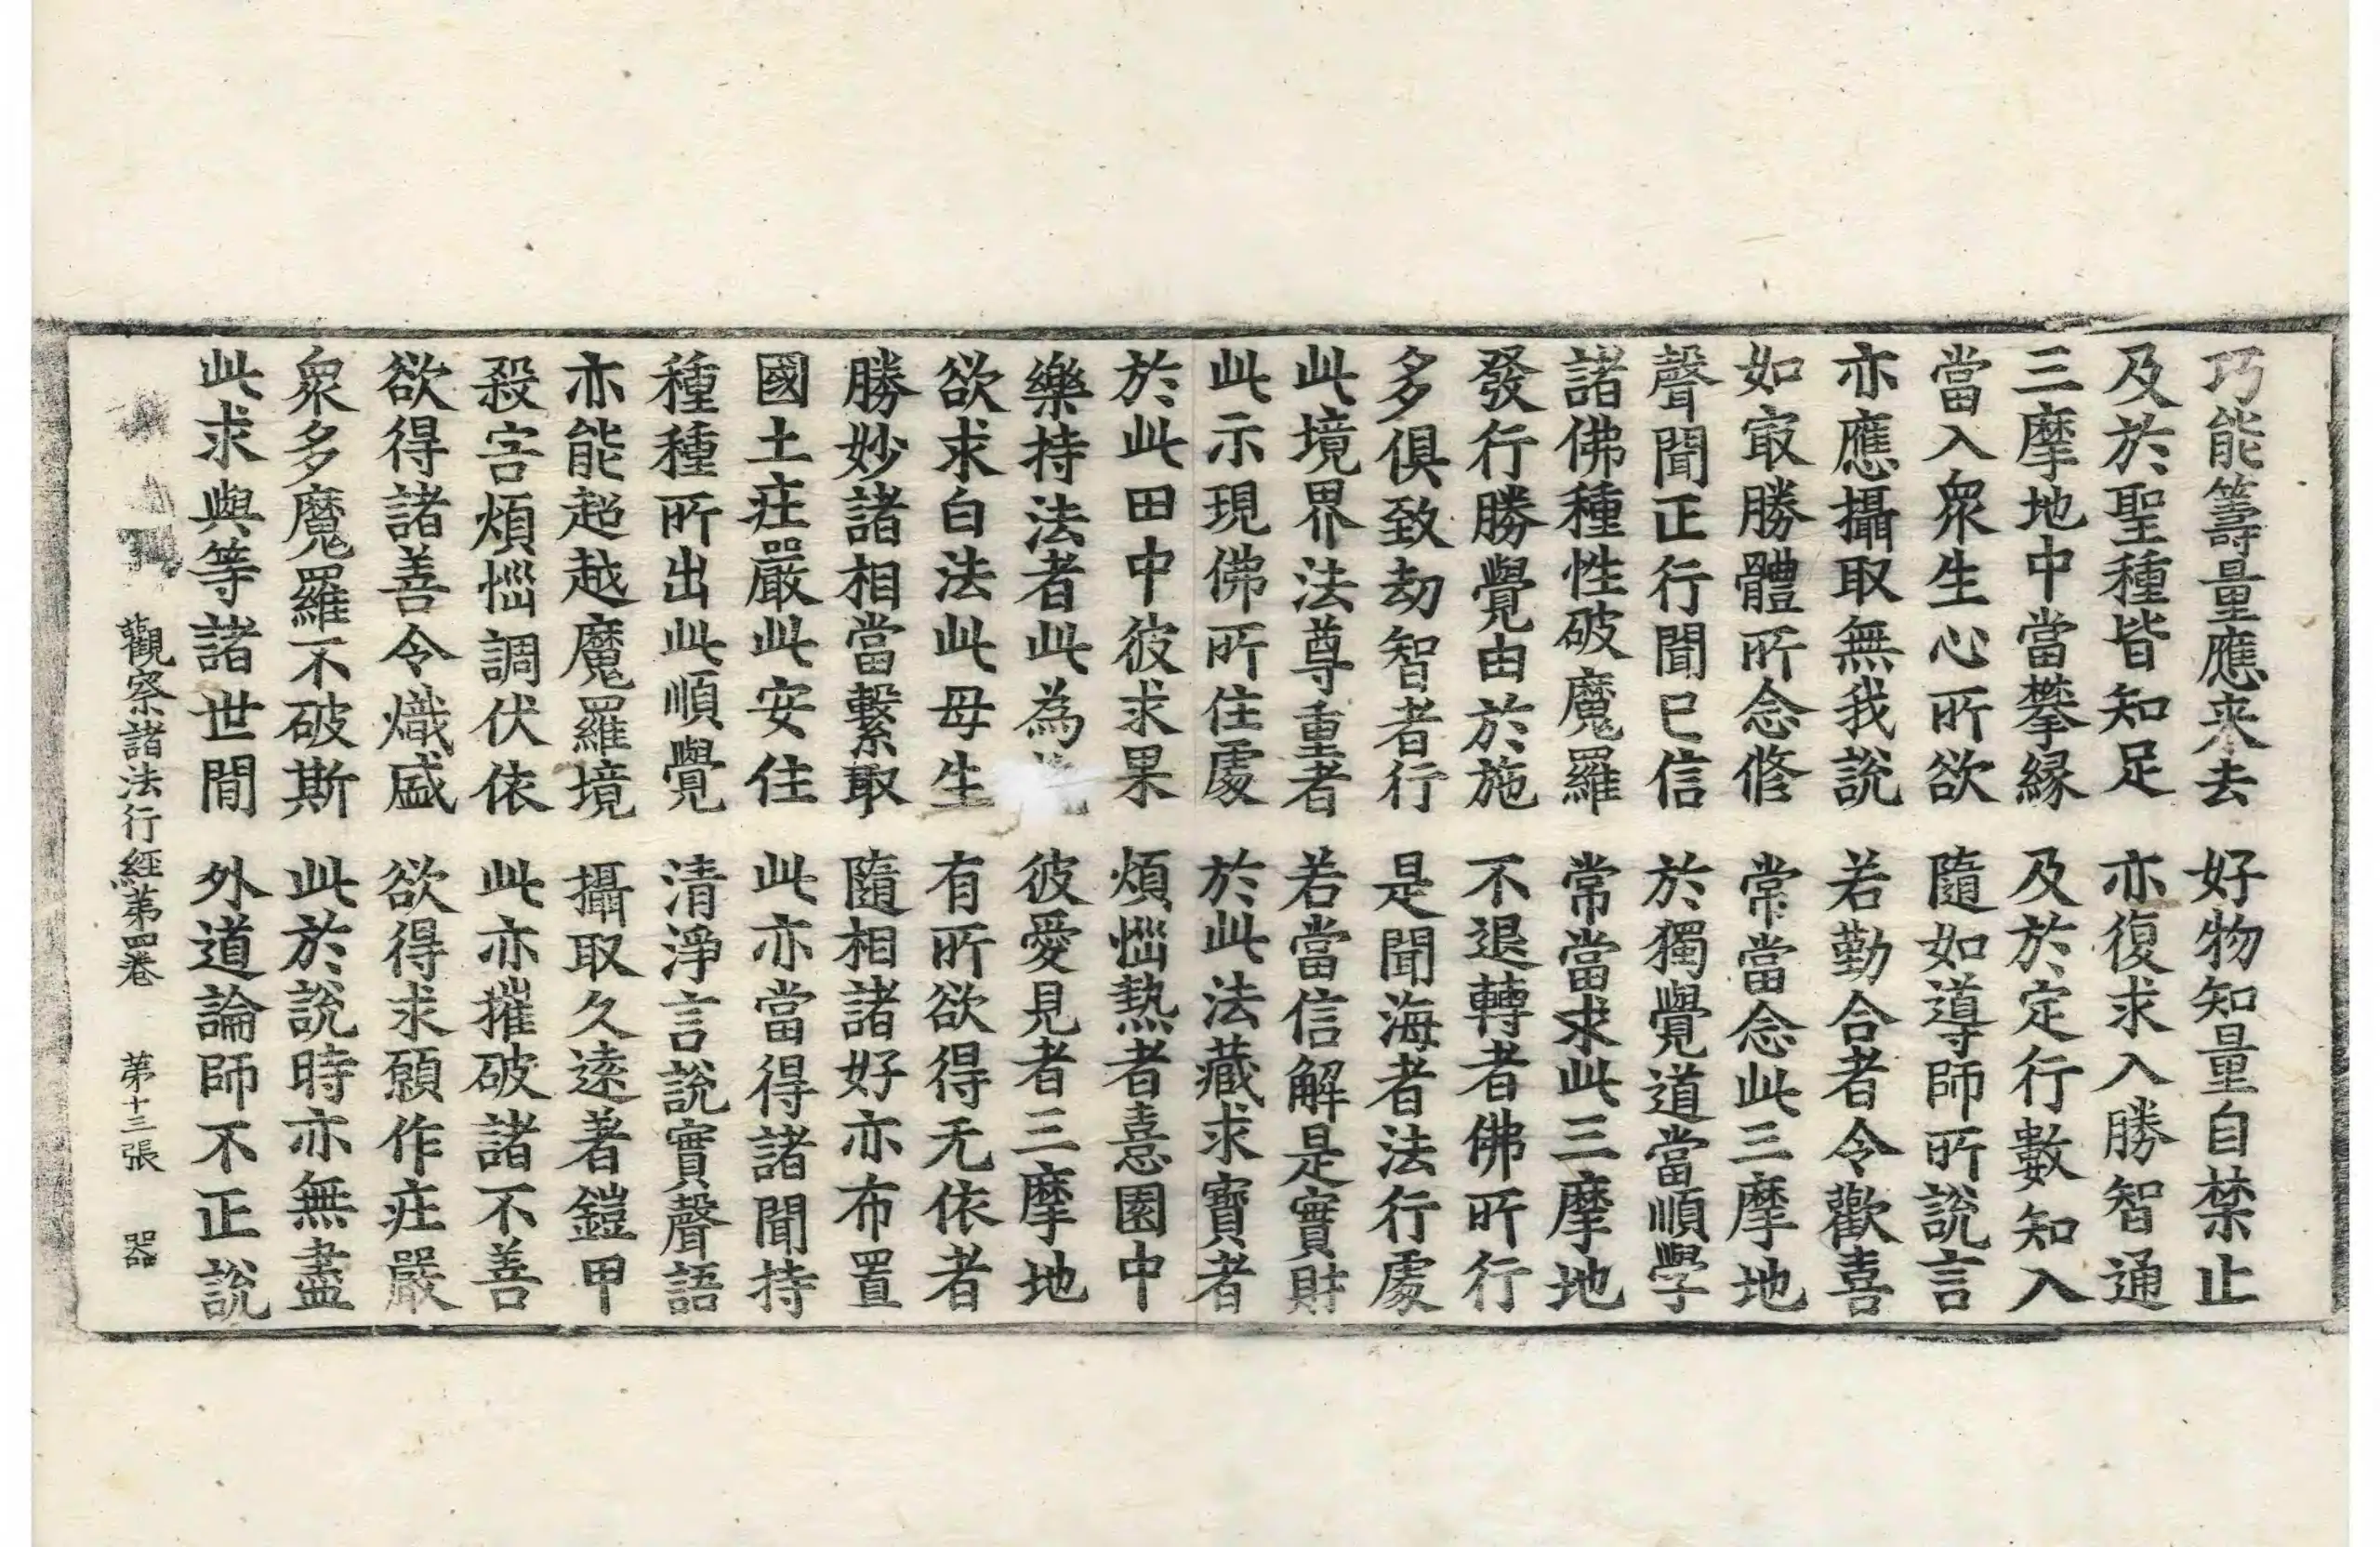 巧能籌量應来去　好物知量自禁止
及於聖種皆知足　亦復求入勝智通
三摩地中當攀縁　及於定行數知入
當入衆生心所欲　隨如導師所說言
亦應攝取無我說　若勤合者令歡喜
如㝡勝體所念修　常當念此三摩地
聲聞正行聞已信　於獨覺道當順學
諸佛種性破魔羅　常當求此三摩地
發行勝覺由於施　不退轉者佛所行
多俱致劫智者行　是聞海者法行處
此境界法尊重者　若當信解是實財
此示現佛所住處　於此法藏求寶者
於此田中彼求果　煩惱熱者憙園中
樂持法者此為　彼愛見者三摩地
欲求白法此母生　有所欲得无依者
勝妙諸相當繫取　隨相諸好亦布置
國土庄嚴此安住　此亦當得諸聞持
種種所出此順覺　清淨言說實聲語
亦能超越魔羅境　攝取久遠著鎧甲
殺害煩惱調伏依　此亦摧破諸不善
欲得諸善令熾盛　欲得求願作庄嚴
衆多魔羅不破斯　此於說時亦無盡
此求與等諸世間　外道論師不正說
觀察諸法行經第四卷　第十三張　器